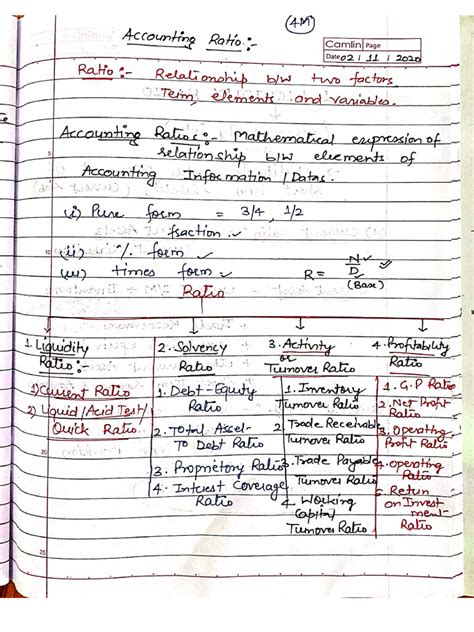 (4M)
Accounting Ratio :-
Camlin Page
Date 02 / 11 / 2020
Ratio :- Relationship b/w two factors
Term, elements and variables.
Accounting Ratios :- Mathematical expression of
relationship b/w elements of
Accounting Information / Datas.
(i) Pure form = 3/4, 1/2
fraction.
10
(ii) % form
(iii) times form
R = N/D
(Base)
Ratio
1. Liquidity
Ratio :-
1) Current Ratio
2) Liquid/Acid Test/
Quick Ratio
2. Solvency
Ratio
1. Debt-Equity
Ratio
2. Total Asset
To Debt Ratio
3. Propritory Ratio
4. Interest Coverage
Ratio
3. Activity
or
Turnover Ratio
1. Inventory
Turnover Ratio
2. Trade Receivable
Turnover Ratio
3. Trade Payable
Turnover Ratio
4. Working
Capital
Turnover Ratio
4. Profitability
Ratio
1. G.P Ratio
2. Net Profit
Ratio
3. Operating
Profit Ratio
4. Operating
Ratio
5. Return
on Invest
ment-
Ratio
20
25